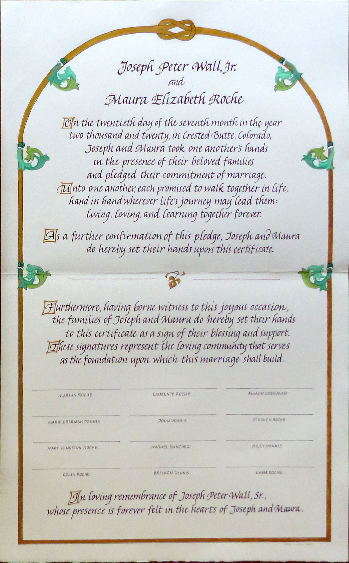 Joseph Peter Wall, Jr.
and
Maura Elizabeth Roche
On the twentieth day of the seventh month in the year
two thousand and twenty, in Crested Butte, Colorado,
Joseph and Maura took one another's hands
in the presence of their beloved families
and pledged their commitment of marriage.
Unto one another, each promised to walk together in life,
hand in hand wherever life's journey may lead them:
living, loving, and learning together forever.
As a further confirmation of this pledge, Joseph and Maura
do hereby set their hands upon this certificate.
Furthermore, having borne witness to this joyous occasion,
the families of Joseph and Maura do hereby set their hands
to this certificate as a sign of their blessing and support.
These signatures represent the loving community that serves
as the foundation upon which this marriage shall build.
ROCHE ROCHE
DENNIS ROCHE
ROCHE
ROCHE DENNIS ROCHE
In loving remembrance of Joseph Peter Wall, Sr.,
whose presence is forever felt in the hearts of Joseph and Maura.